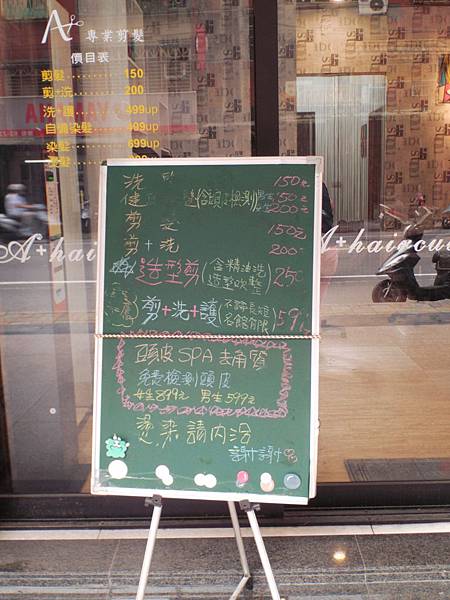 A+ 專業剪髮
價目表
剪髮 150
剪+洗 200
洗+護 499up
自備染髮 499up
染髮 699up
洗 150元
健 頭 檢測 男150元
200元
剪 150元
剪+洗 200
造型剪(含精油洗 造型吹整 250
剪+洗+護 不論長短 名額有限 59
頭皮SPA去角質
免費檢測頭皮
女生899元 男生599元
燙染請內洽
謝謝
A+hair
A+haircu